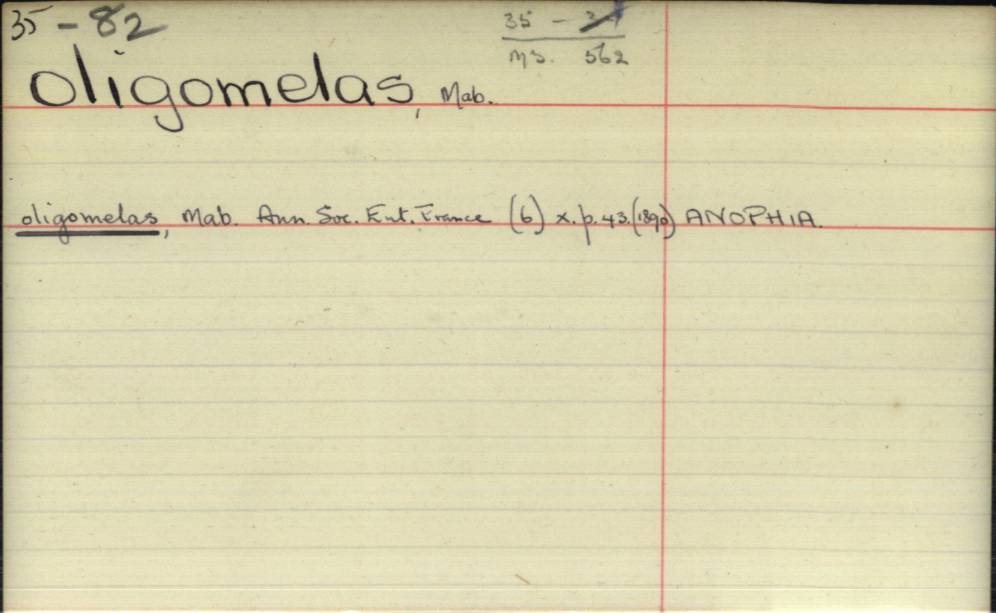 35 - 82
35 -
MS. 562
oligomelas, Mab.
oligomelas, Mab. Ann. Soc. Ent. France (6) x. p. 43. (1890) ANOPHIA.